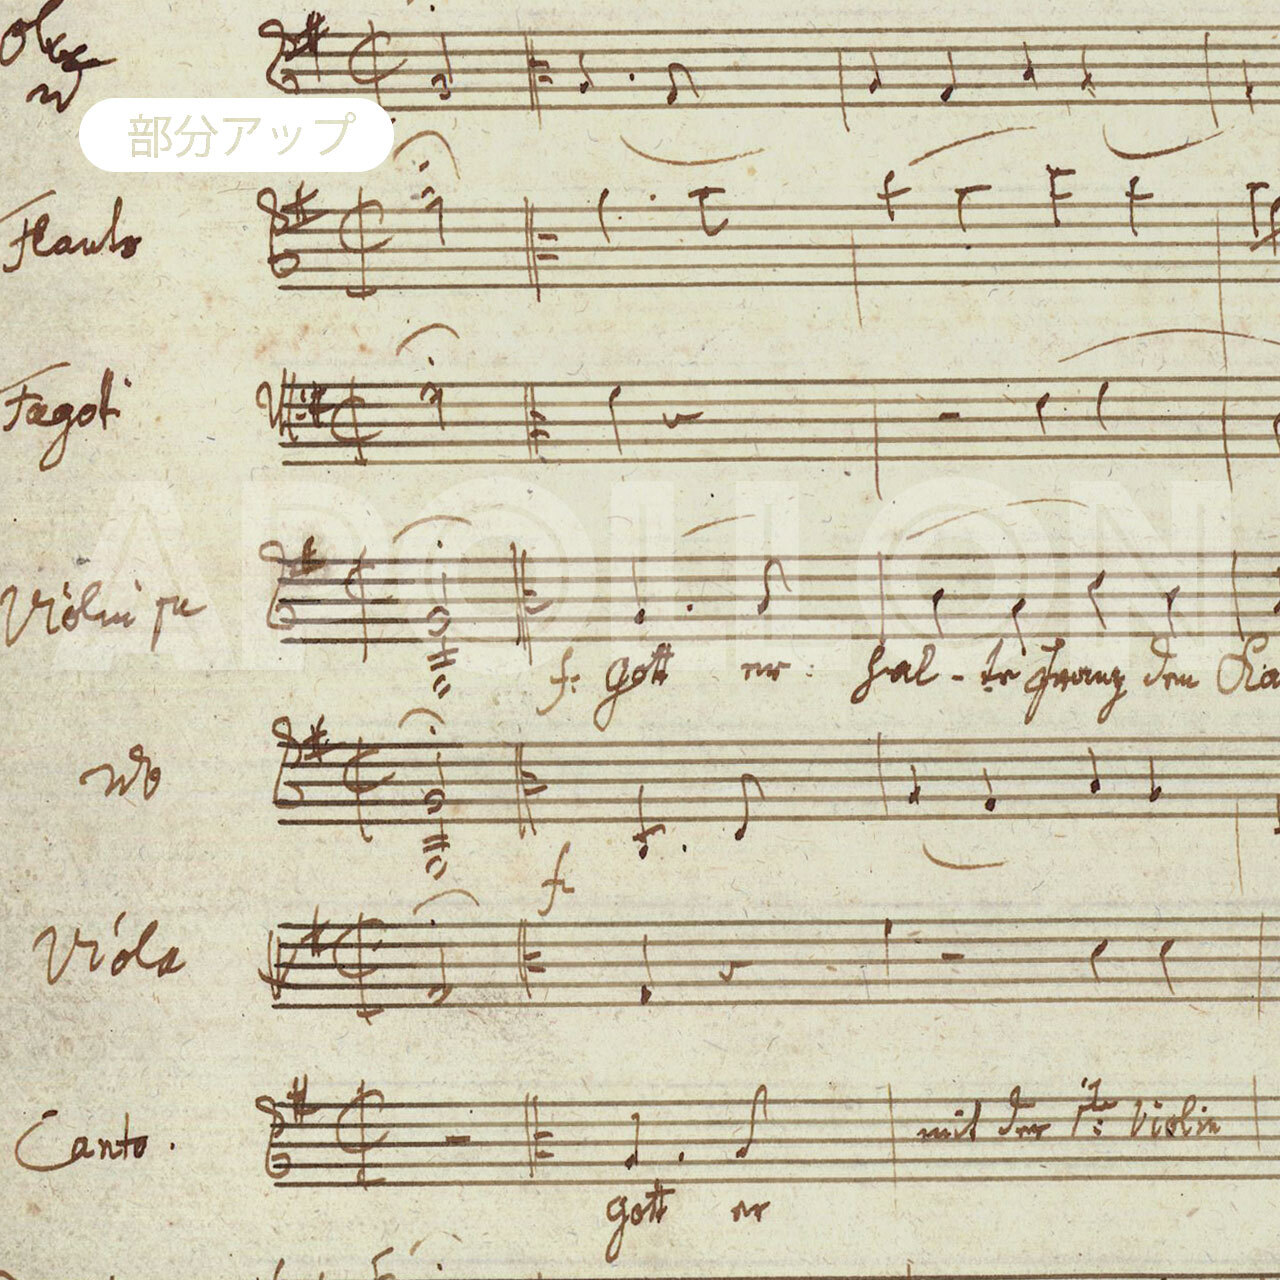 部分アップ
Flauto
Fagoti
APOLLON
Violini pr
f: Gott er: hal-te Franz den Ka
2do
f.
Viola
Canto.
mit der 1te: Violin
Gott er